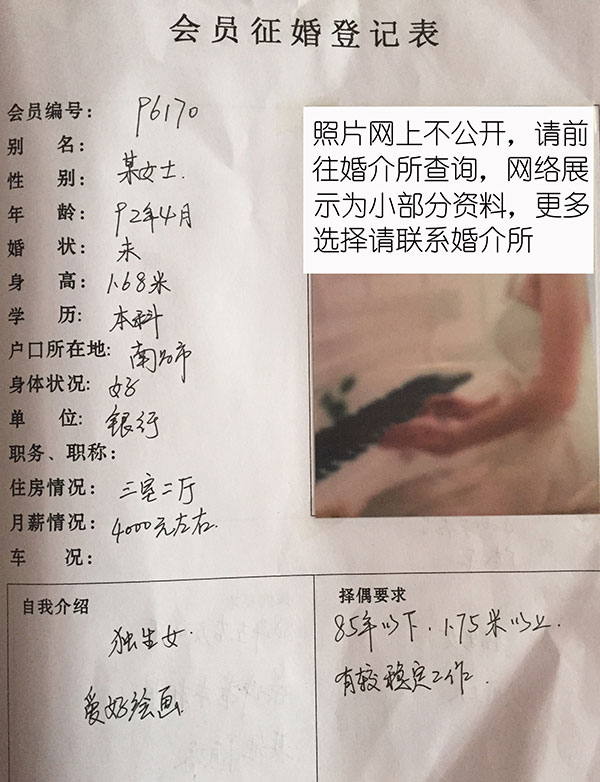 会员征婚登记表
会员编号： P6170
别 名：
性 别： 某女士.
年 龄： 92年4月
婚 状： 未
身 高： 1.68米
学 历： 本科
户口所在地： 南昌市
身体状况： 好
单 位： 银行
职务、职称：
住房情况： 三室二厅
月薪情况： 4000元左右.
车 况：
照片网上不公开，请前
往婚介所查询，网络展
示为小部分资料，更多
选择请联系婚介所
自我介绍
独生女.
爱好绘画.
择偶要求
85年以下. 1.75米以上.
有较稳定工作.